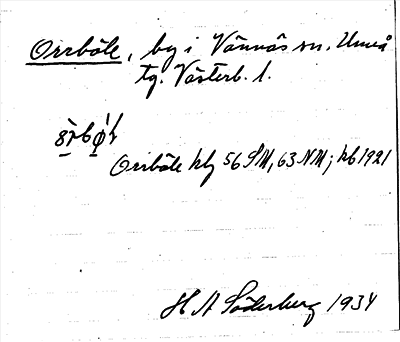 Orrböle, by i Vännäs sn. Umeå
tg. Västerb. l.
Orrböle hfl 56 SM, 63 NM; kb 1921
H A Söderberg 1934